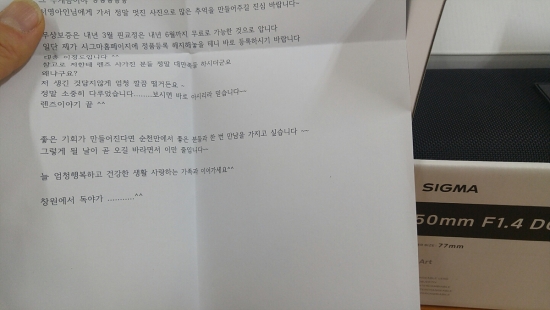 이명아인님에게 가서 정말 멋진 사진으로 많은 추억을 만들어주길 진심 바랍니다~
무상보증은 내년 3월 핀교정은 내년 6월까지 무료로 가능한 것으로 압니다
일단 제가 시그마홈페이지에 정품등록 해지해놓을 테니 바로 등록하시기 바랍니다
참고로 저한테 렌즈 사가진 분들 정말 대만족을 하시더군요
왜냐구요?
저 생긴 것답지않게 엄청 깔끔 떨거든요 ~
정말 소중히 다루었습니다.........보시면 바로 아시리라 믿습니다~
렌즈이야기 끝 ^^
좋은 기회가 만들어진다면 순천만에서 좋은 분들과 한 번 만남을 가지고 싶습니다 ~~
그렇게 될 날이 곧 오길 바라면서 이만 줄입니다~
늘 엄청행복하고 건강한 생활 사랑하는 가족과 이어가세요^^
창원에서 독야가 ...........^^
SIGMA
50mm F1.4 D
77mm
Art